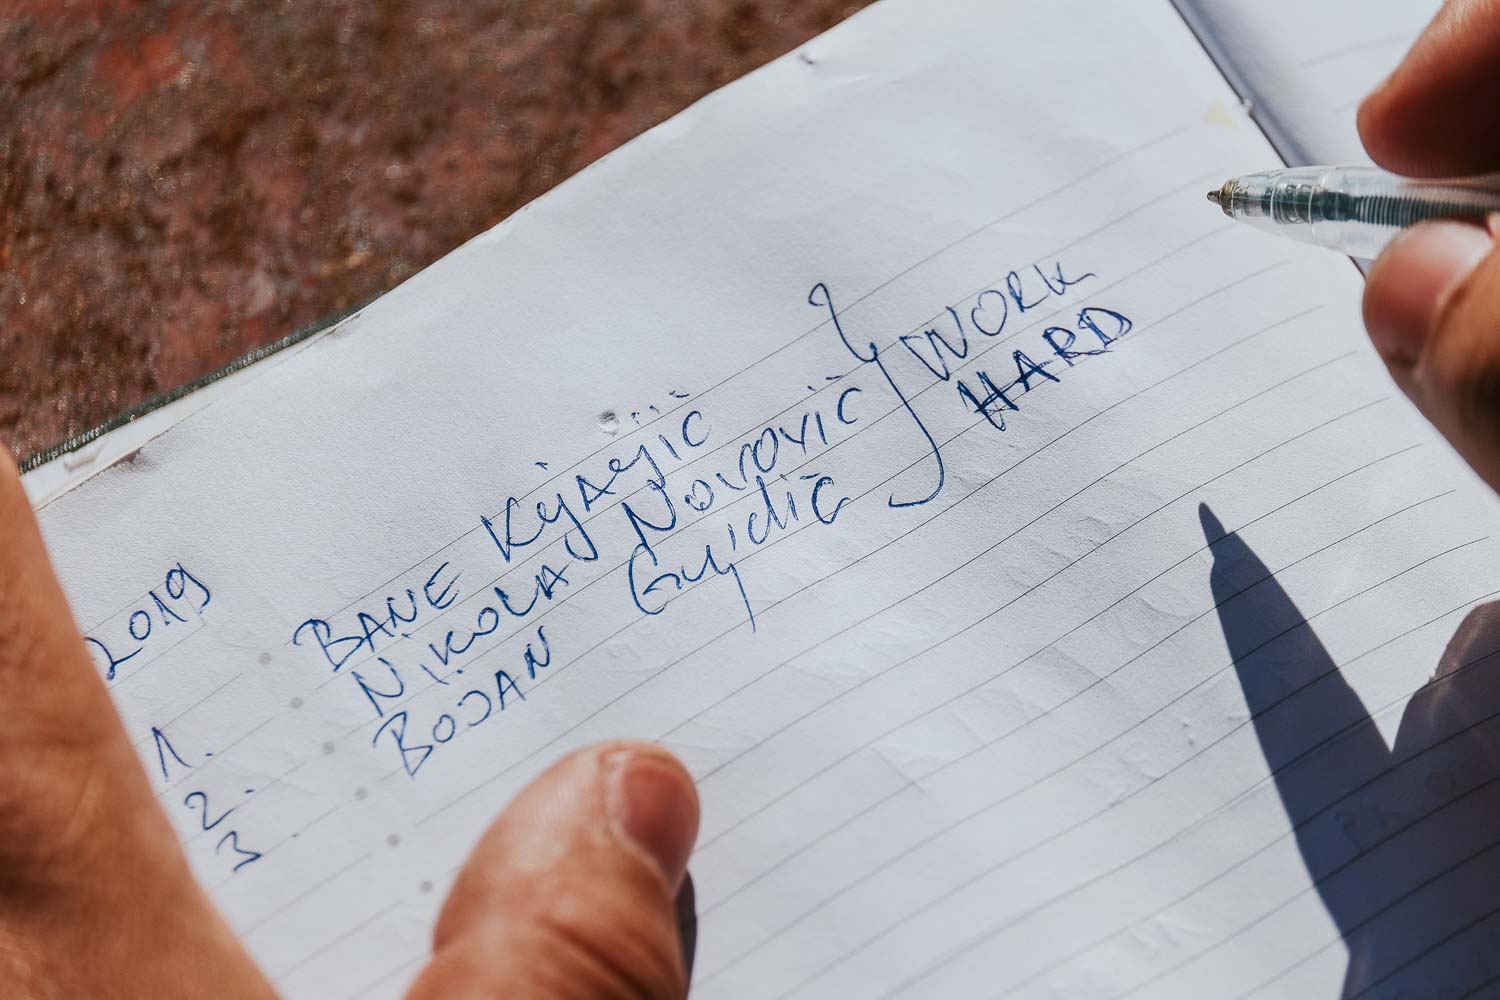 2019
1. BANE Kijajič
2. NIKOLA Novovič
3 BOJAN Gujdič
WORK
HARD